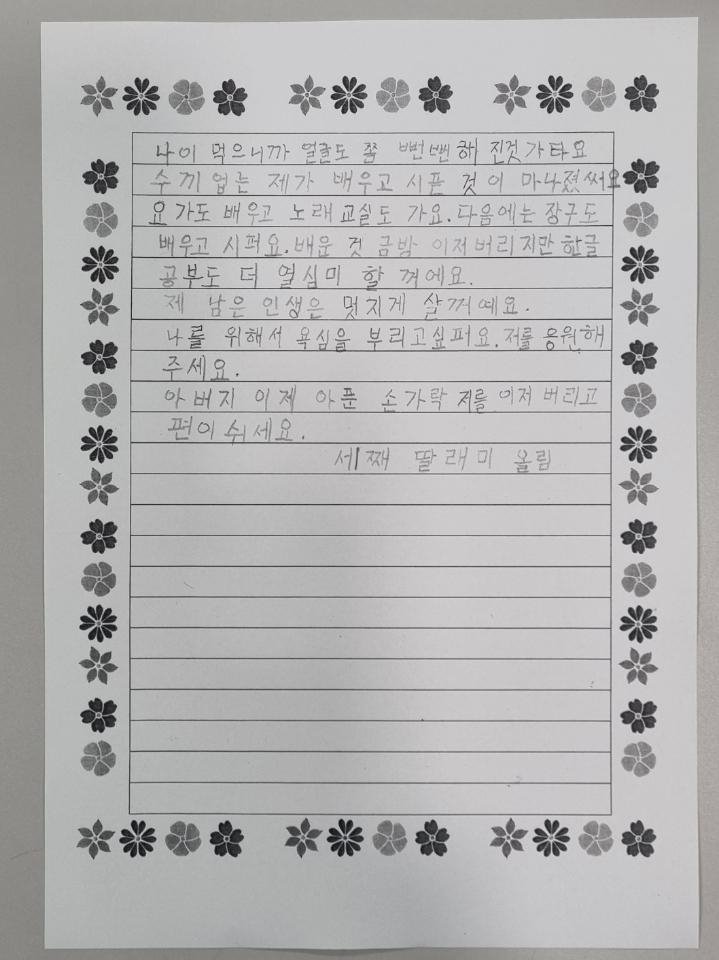 나이 먹으니까 얼굴도 쫌 뻔뻔해 진것 가타요
수끼 업는 제가 배우고 시픈 것이 마나졌써요
요가도 배우고 노래교실도 가요. 다음에는 장구도
배우고 시퍼요. 배운 것 금방 이저버리지만 한글
공부도 더 열심미 할 꺼에요.
제 남은 인생은 멋지게 살꺼예요.
나를 위해서 욕심을 부리고싶퍼요. 저를 응원해
주세요.
아버지 이제 아푼 손가락 저를 이저 버리고
편이 쉬세요.
세째 딸래미 올림